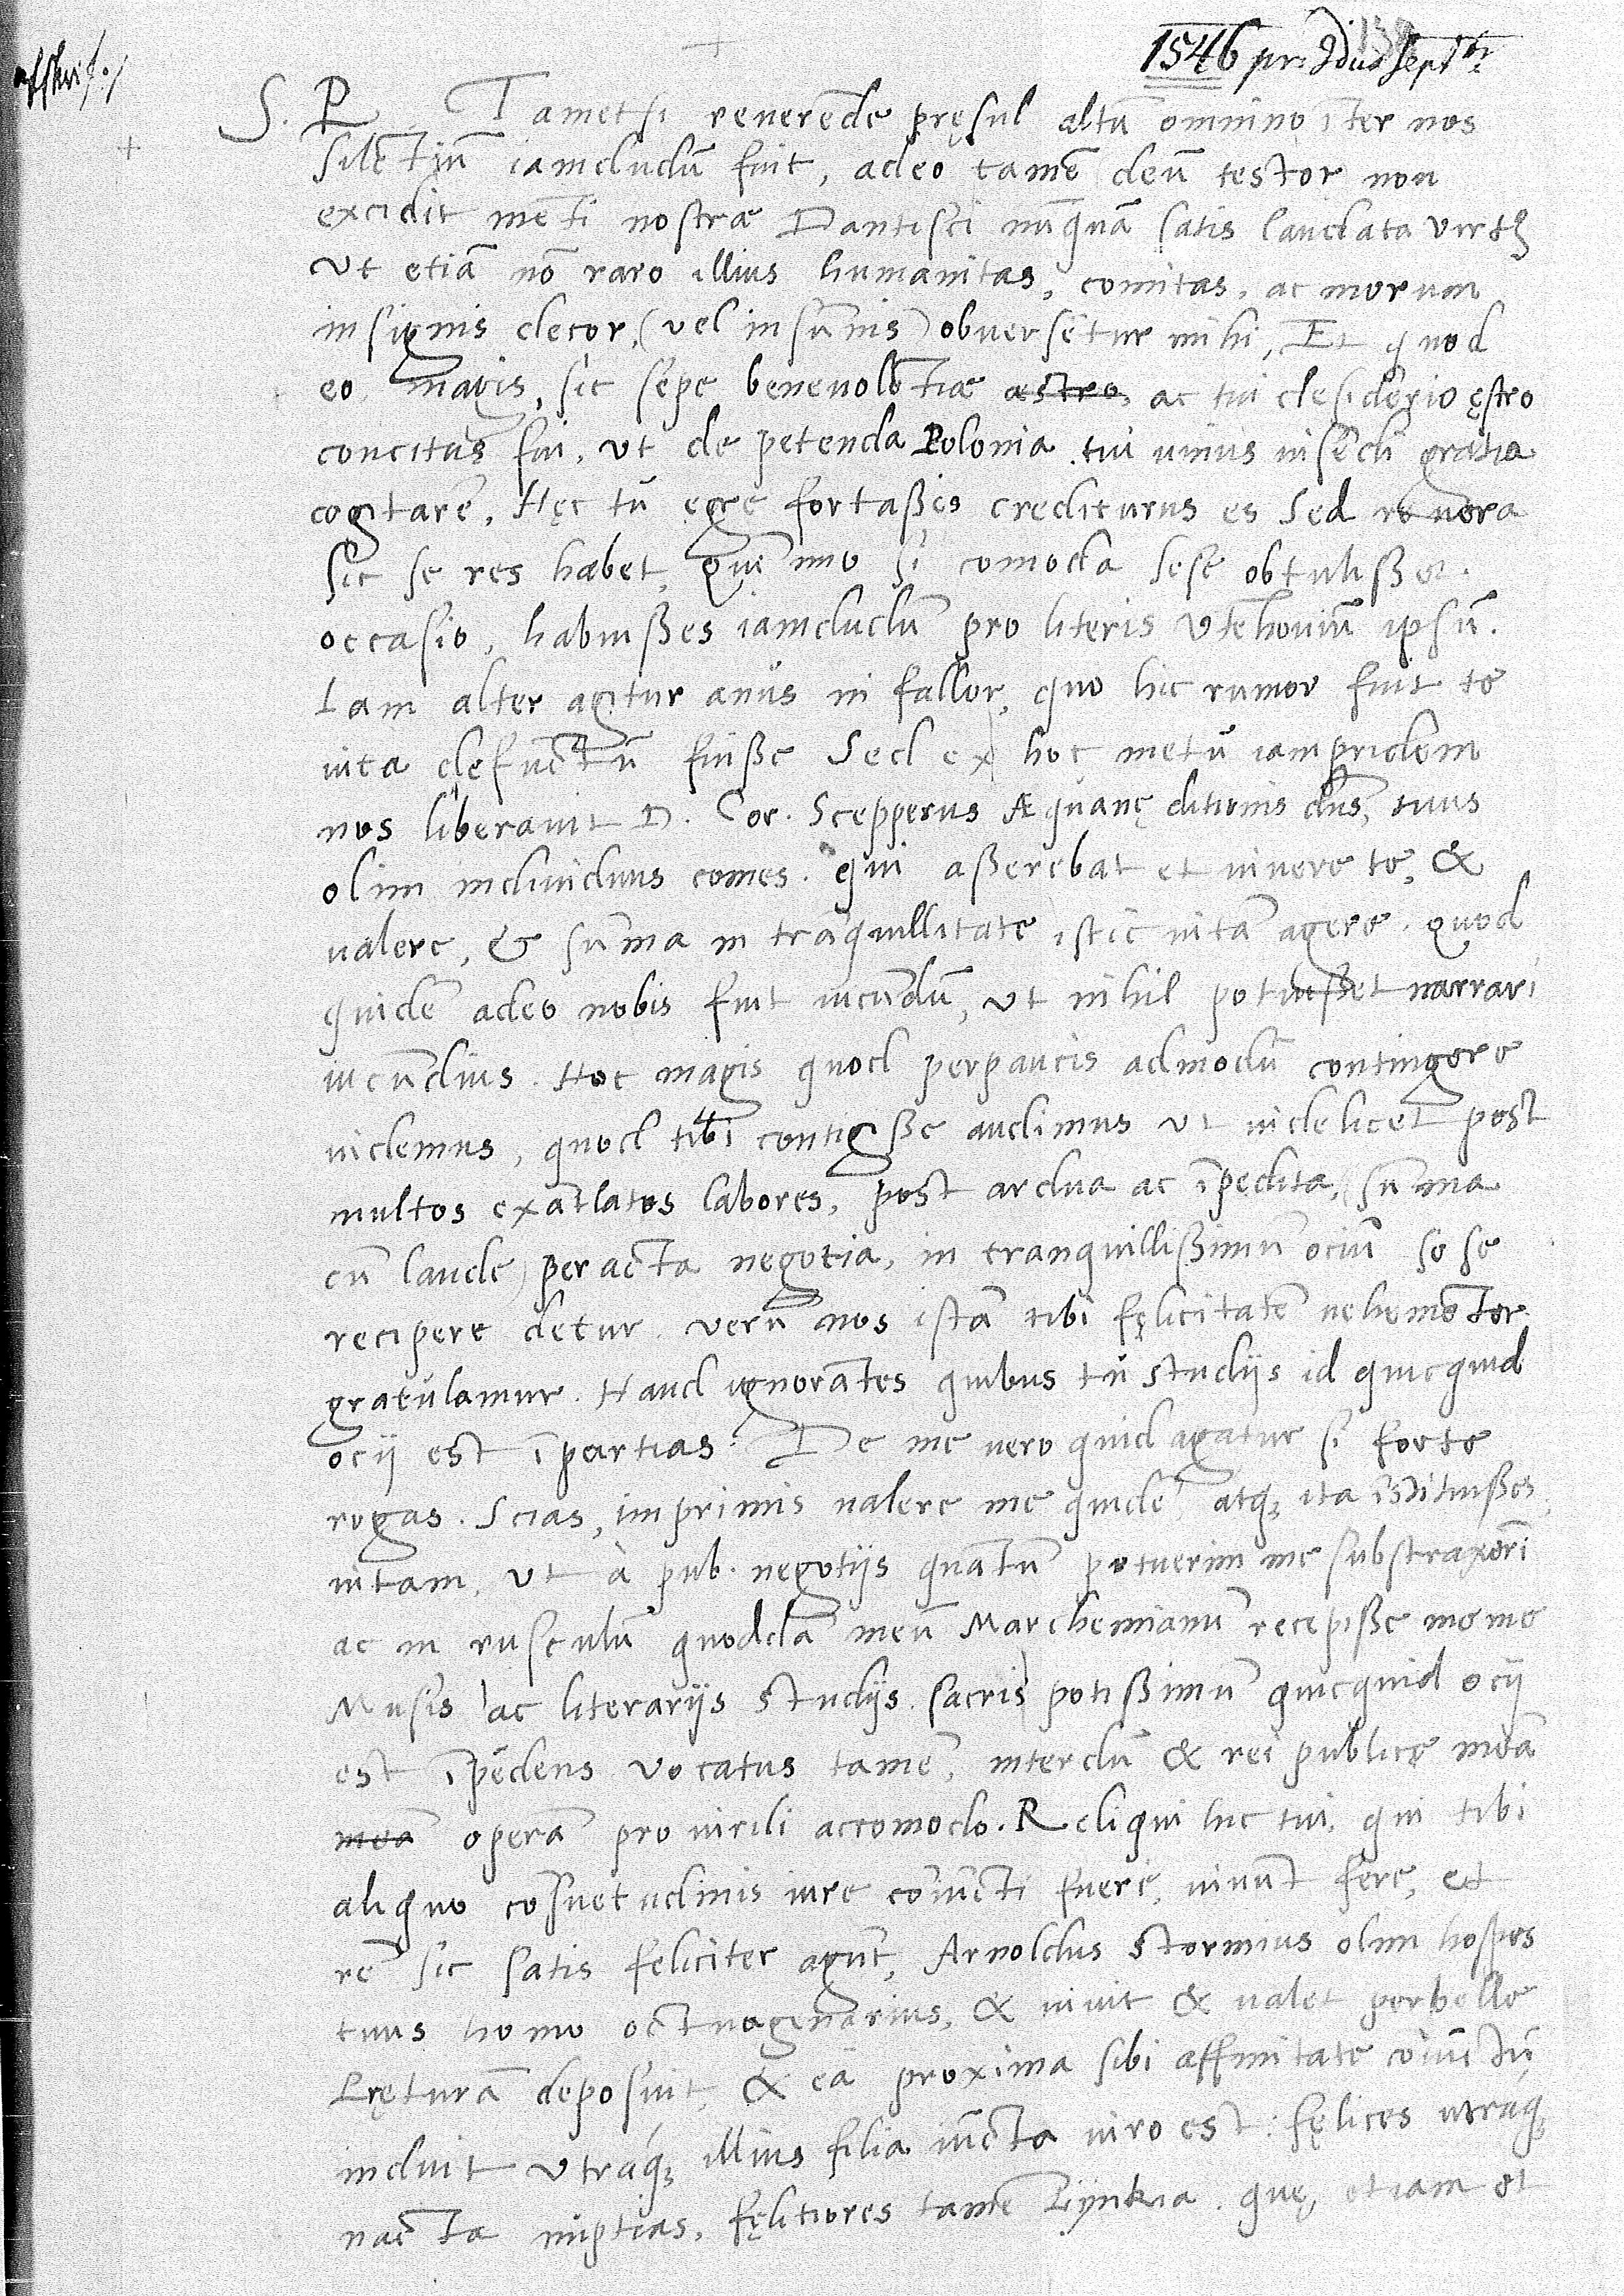 1546 pri Idus Septbr
S. P. Tametsi reverēde pręsul altū omnino īter nos
silētiū iamdudū fuit, adeo tamē deū testor non
excidit mēti nostrae Dantisci nūquā satis laudata virtus
Ut etiā nō raro illius humanitas, comitas, ac morum
insignis decor, (vel in sōmnis) obversētur mihi, Et quod
eo magis, sic sępe benevolētiae aestro, ac tui desiderio ęstro
concitus fui, ut de petenda Polonia tui unius visēdi gratia
cogitarē. Hęc tu egre fortaßes crediturus es Sed revera
sic se res habet, quī imo si comoda sese obtulißet
occasio, habuißes iamdudū pro literis Utēhoviū ipsū.
Iam alter agitur anūs ni fallor, quo hic rumor fuit te
vita defūctū fuiße Sed ex hoc metū iampridem
nos liberavit D. Cor. Scepperus Æquanę ditionis dns, tuus
olim individuus comes. qui aßerebat et vivere te, &
valere, & sūma in trāquillitate istic vitā agere. quod
quidē adeo nobis fuit iucūdū, ut nihil potuißet narrari
iucūdius. Hoc magis quod perpaucis admodū contingere
videmus, quod tibi contigiße audimus ut videlicet post
multos exātlatos labores, post ardua ac īpedita, (sūma
cū laude) peracta negotia, in tranquillißimū ociū se se
recipere detur. verū nos istā tibi fęlicitatē vehemēter
gratūlamur. Haud ignorātes quibus tū studijs id quicquid
ocij est īpertias. De me vero quid agatur si forte
rogas. Scias, imprimis valere me quidē atq; ita īstituißes
vitam, ut à pub. negotijs quātū potuerim me substraxeri
ac in rusculū quoddā meū Marchenianū recepiße me me
Musis ac literarijs studijs (sacris) potißimū quicquid ocij
est īpēdens vocatus tamē, interdū & rei publicę meā
meā operā pro virili accomodo. Reliqui hic tui, qui tibi
aliquo cōsuetudinis iure cōiūcti fuere, vivūt fere, et
rē sic satis feliciter agūt, Arnoldus Stormius olim hospes
tuus homo octuagenarius, & vivit & valet perbelle
Pręturā deposuit, & eā proxima sibi affinitate cōiūctū
induit Utráq; illius filia iūcta viro est: fęlices utraq;
nacta nuptias, fęlitiores tamē Lijnkia. quę, etiam et